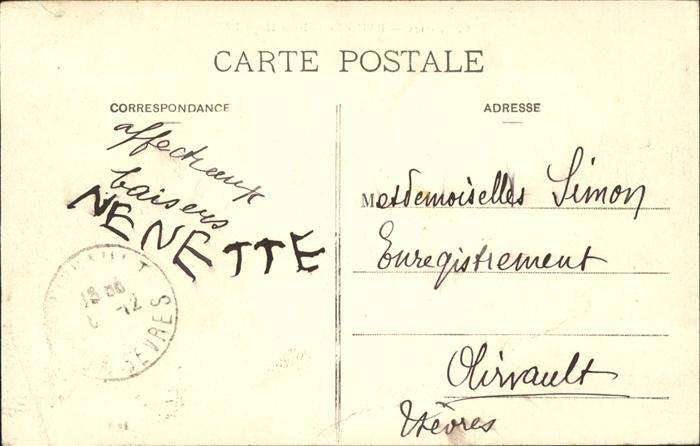 CARTE POSTALE
CORRESPONDANCE
affectueux
baisers
NENETTE
ADRESSE
Mesdemoiselles Simon
Enregistrement
Airvault
Sèvres
SEVRES